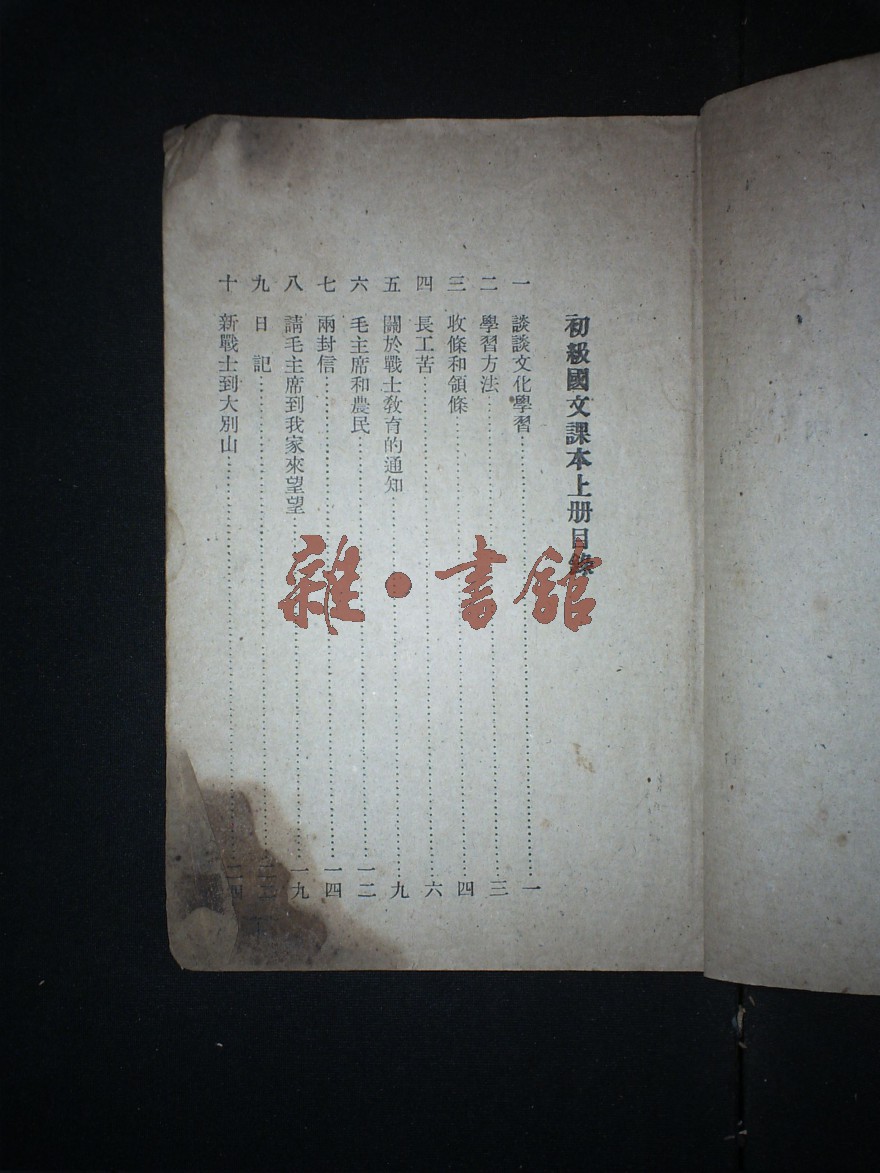 初級國文課本上册目錄
一 談談文化學習……一
二 學習方法……三
三 收條和領條……四
四 長工苦……六
五 關於戰士教育的通知……九
六 毛主席和農民……一二
七 兩封信……一四
八 請毛主席到我家來望望……一九
九 日記……二二
十 新戰士到大別山……二四
雜·書館